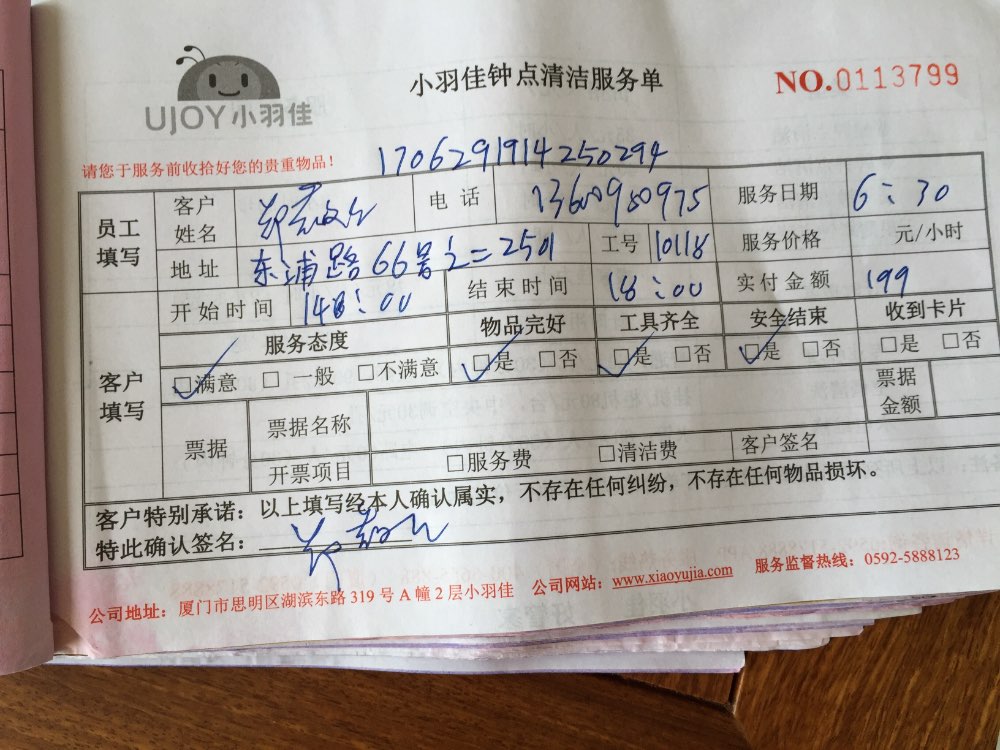 UJOY小羽佳
小羽佳钟点清洁服务单
NO.0113799
请您于服务前收拾好您的贵重物品！
1706291914250294
员工填写 客户姓名 郑 电话 13600980975 服务日期 6：30
地址 东浦路66号之二2501 工号 10118 服务价格 元/小时
开始时间 14：00 结束时间 18：00 实付金额 199
客户填写 服务态度 物品完好 工具齐全 安全结束 收到卡片
☑满意 □一般 □不满意 ☑是 □否 ☑是 □否 ☑是 □否 □是 □否
票据 票据名称 票据金额
开票项目 □服务费 □清洁费 客户签名
客户特别承诺：以上填写经本人确认属实，不存在任何纠纷，不存在任何物品损坏。
特此确认签名： 郑
公司地址：厦门市思明区湖滨东路319号A幢2层小羽佳 公司网站：www.xiaoyujia.com 服务监督热线：0592-5888123